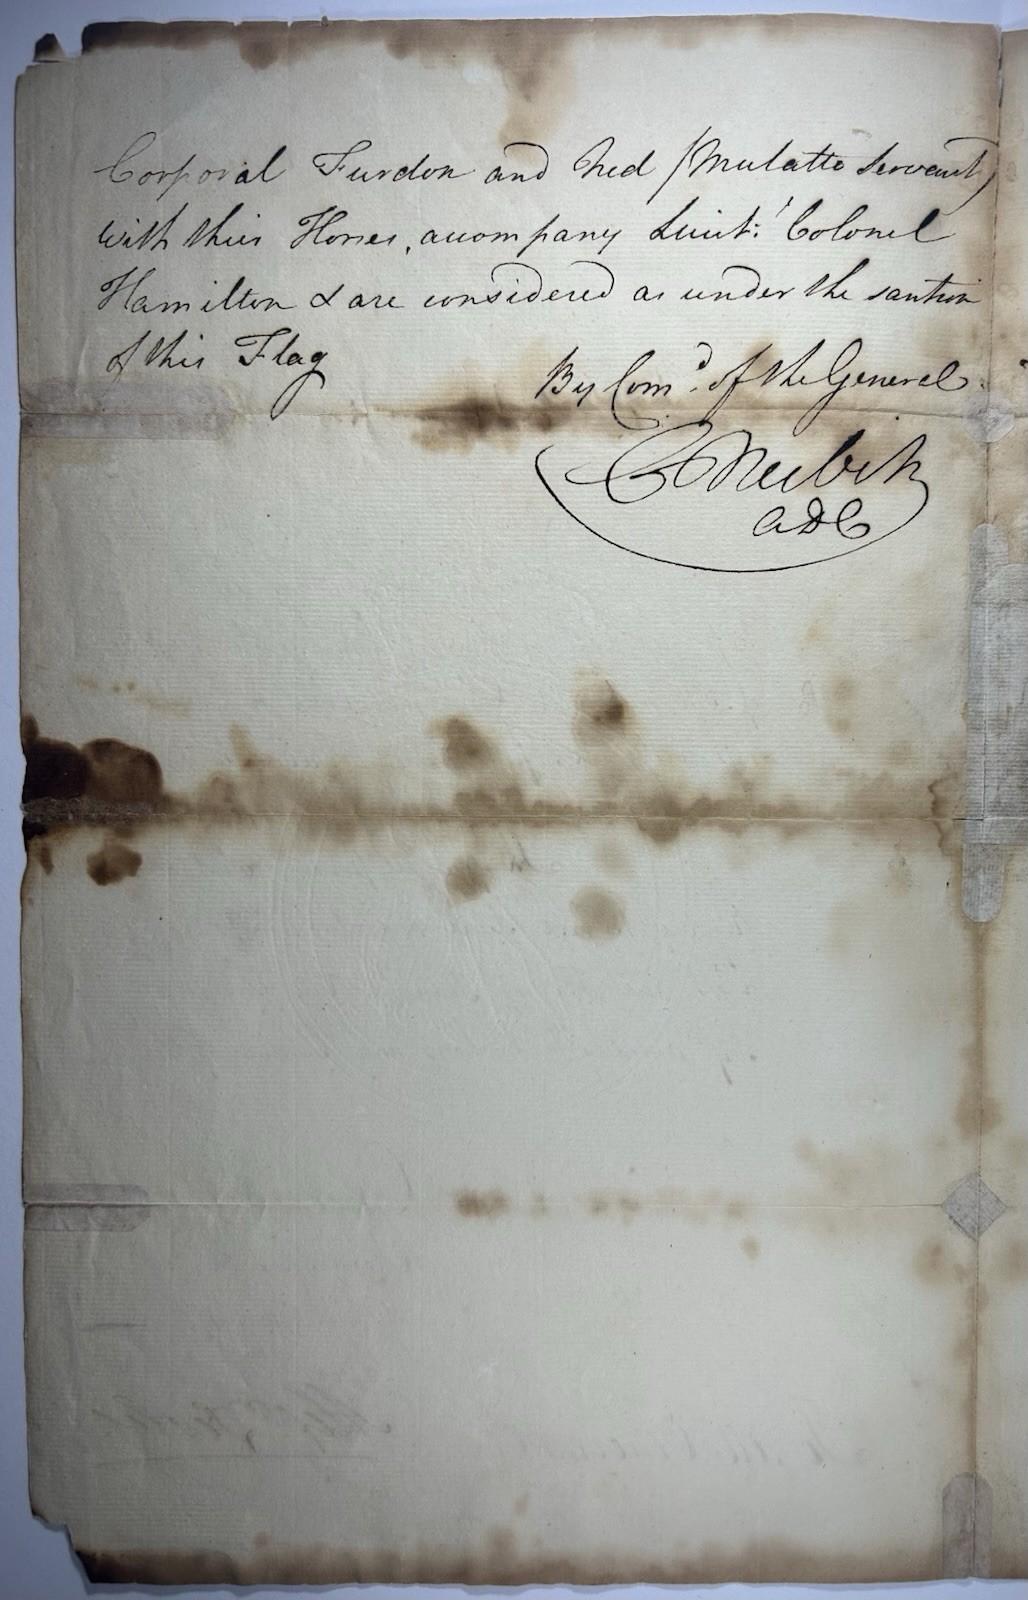 Corporal Furdon and Ned (Mulatto Servant)
with their Horses, accompany Lieut: Colonel
Hamilton & are considered as under the sanction
of this Flag
By Comd. of the General
ADC